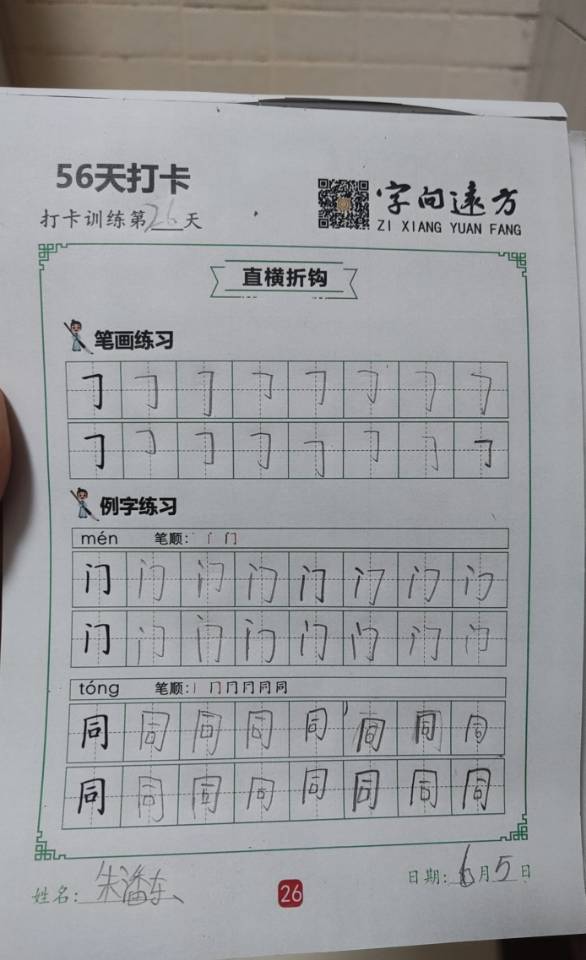 56天打卡
打卡训练第26天
字向远方
ZI XIANG YUAN FANG
直横折钩
笔画练习
㇆ ㇆ ㇆ ㇆ ㇆ ㇆ ㇆ ㇆
㇆ ㇆ ㇆ ㇆ ㇆ ㇆ ㇆ ㇆
例字练习
mén 笔顺: 丶 门
门 门 门 门 门 门 门 门
门 门 门 门 门 门 门 门
tóng 笔顺: 丨 冂 冂 冃 同 同
同 同 同 同 同 同 同 同
同 同 同 同 同 同 同 同
姓名: 朱潘东
26
日期: 6月5日